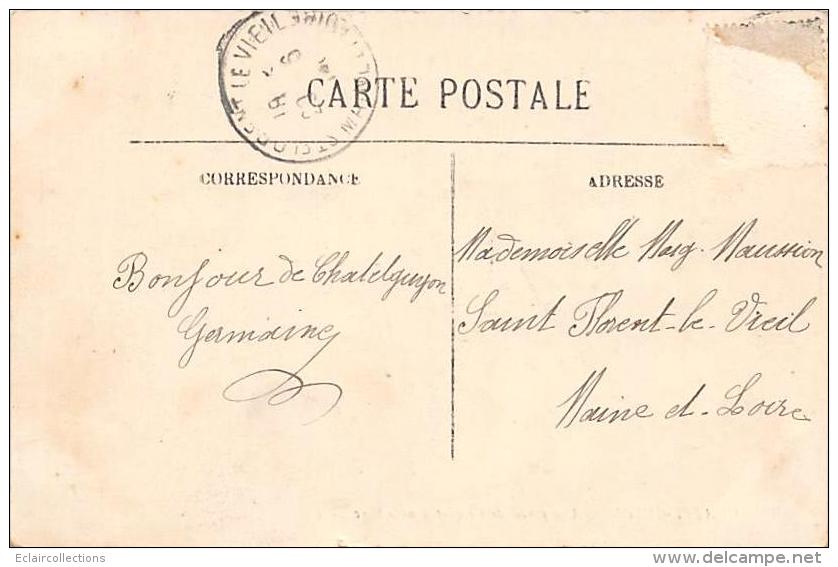 ST FLORENT LE VIEIL MAINE ET LOIRE
CARTE POSTALE
CORRESPONDANCE
ADRESSE
Bonjour de Chatelguyon
Germaine
Mademoiselle Marg. Maussion
Saint Florent-le-Vieil
Maine et-Loire
Eclaircollections
www.delcampe.net